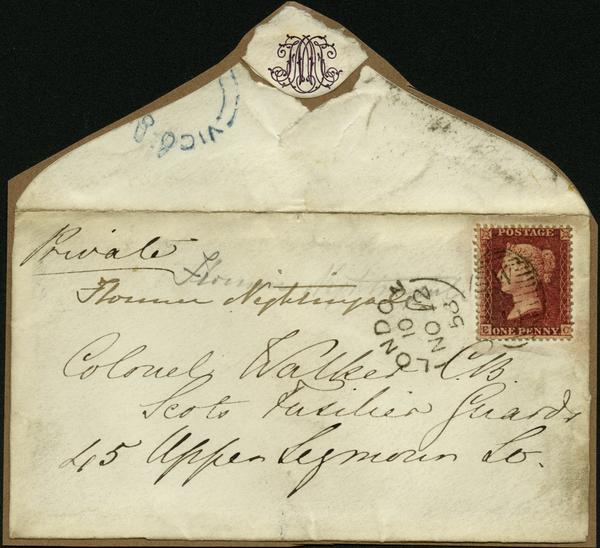 VIGO
Private
Florence Nightingale
POSTAGE
ONE PENNY
LONDON
10
NO 12
58
Colonel Walker C.B.
Scots Fusilier Guards
45 Upper Seymour St.